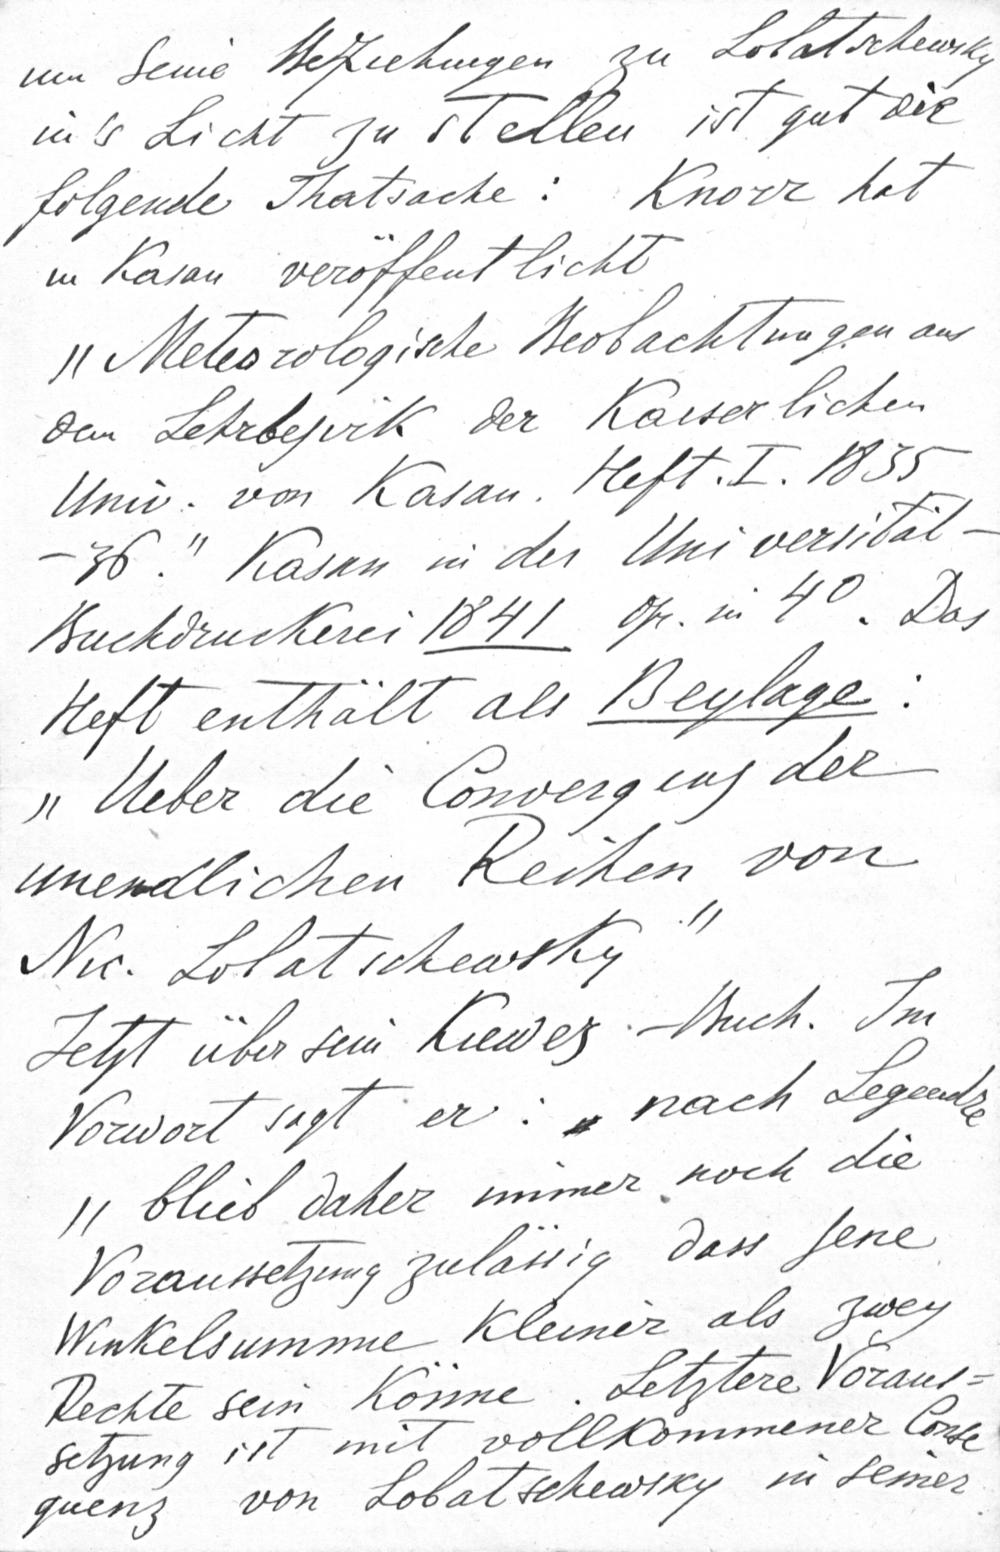 um seine Beziehungen zu Lobatschewsky
in's Licht zu stellen ist gut die
folgende Thatsache: Knorr hat
in Kasan veröffentlicht
„Meteorologische Beobachtungen aus
dem Lehrbezirk der Kaiserlichen
Univ. von Kasan. Heft. I. 1835
–36." Kasan in der Universität-
Buchdruckerei 1841 in 4⁰. Das
Heft enthält als Beylage:
„Ueber die Convergenz der
unendlichen Reihen von
Nic. Lobatschewsky"
Jetzt über sein Kiewer-Buch. Im
Vorwort sagt er: „nach Legendre
„blieb daher immer noch die
Voraussetzung zulässig dass jene
Winkelsumme kleiner als zwey
Rechte sein könne. Letztere Voraus=
setzung ist mit vollkommener Conse
quenz von Lobatschewsky in seiner